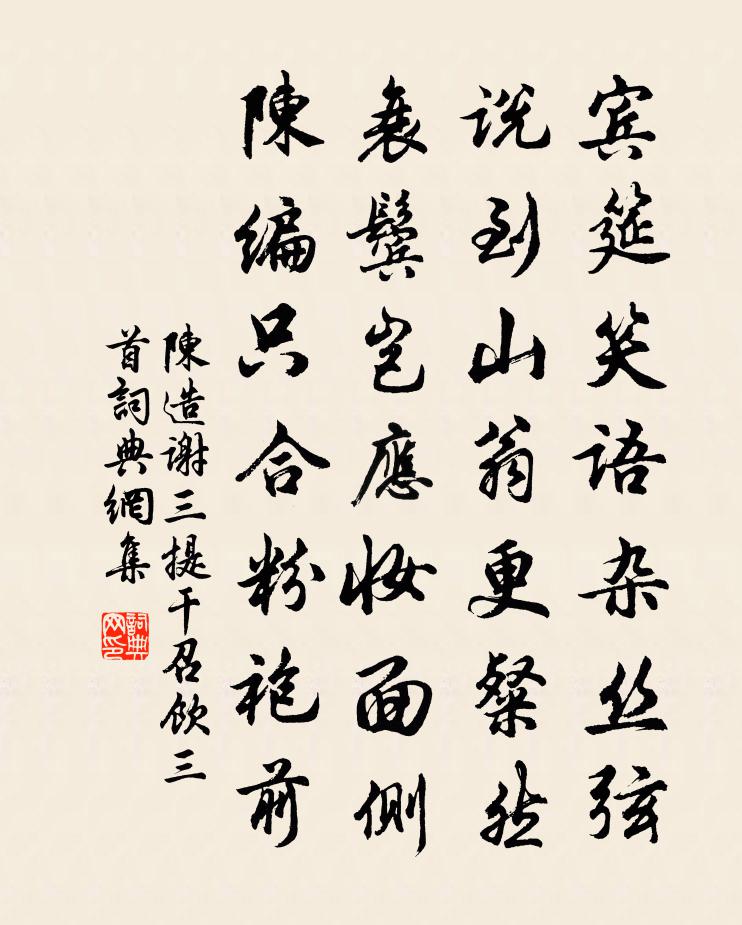 宾筵笑语杂丝弦
说到山翁更粲然
衰鬓岂應妆面側
陳编只合粉袍前
陳造谢三提干召飲三
首詞典網集
詞典网印